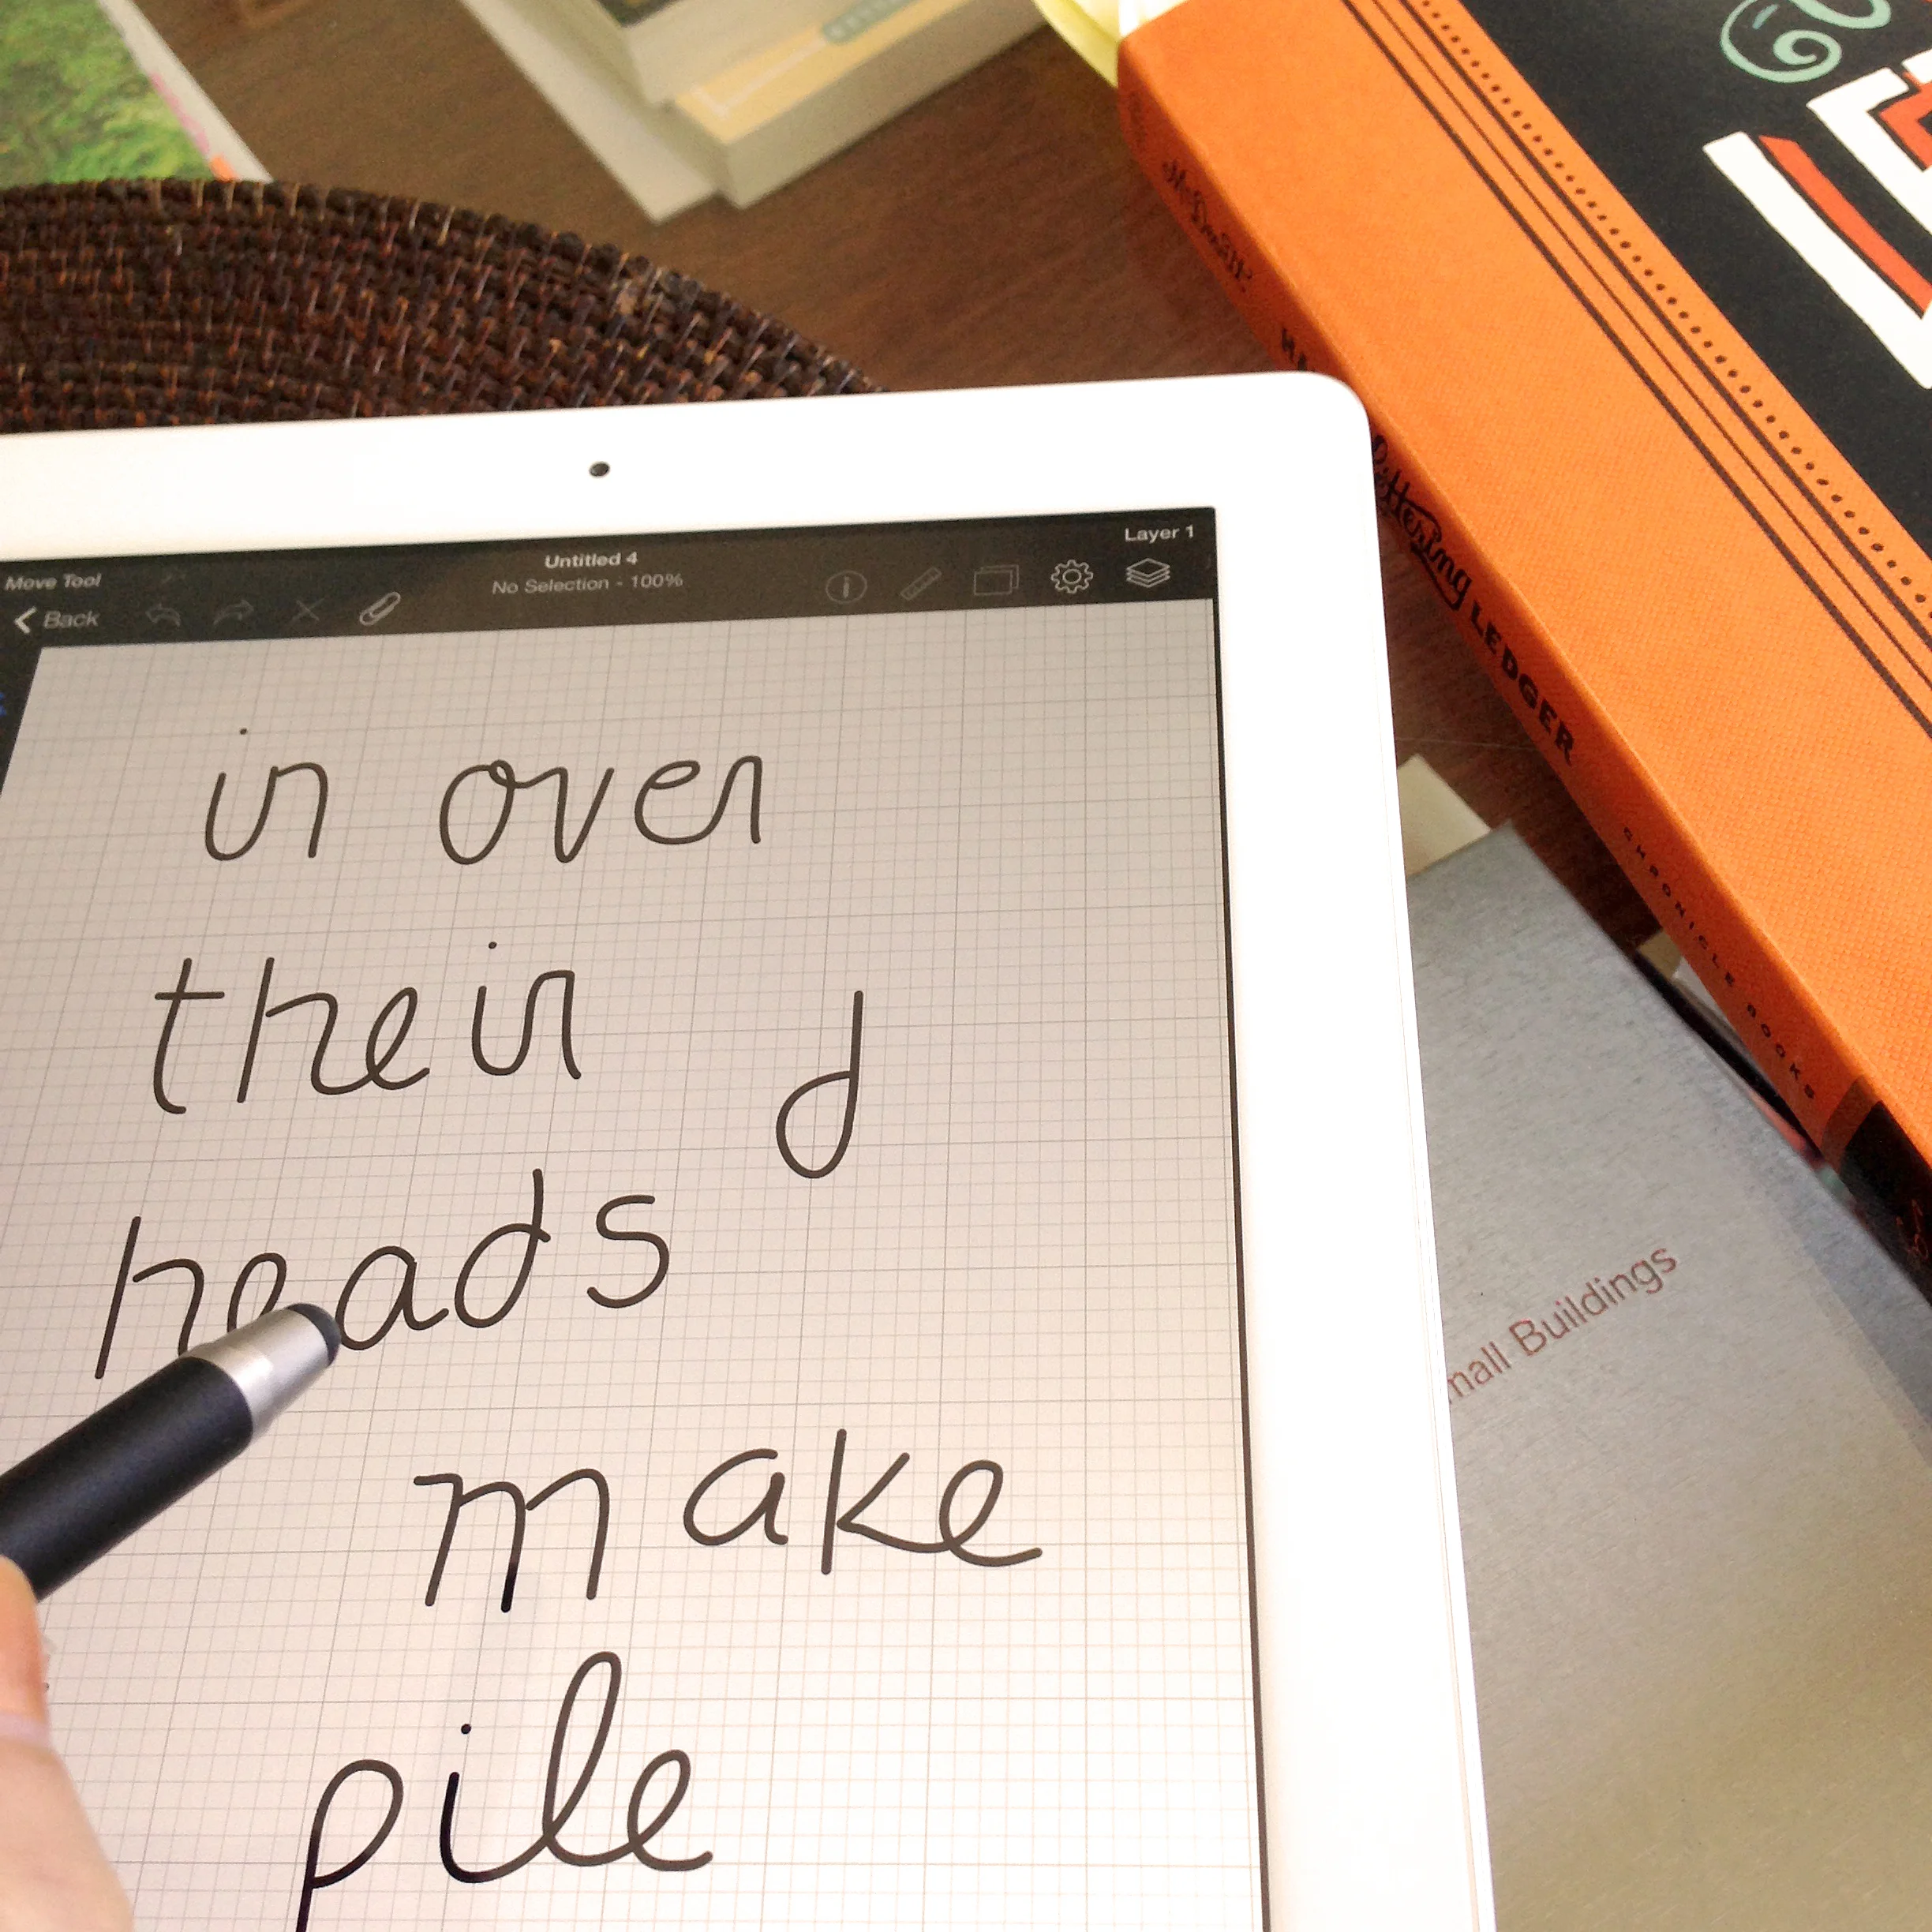 Layer 1
Untitled 4
Move Tool
No Selection - 100%
Back
in over
their
d
heads
make
pile
Lettering LEDGER
CHRONICLE BOOKS
Buildings